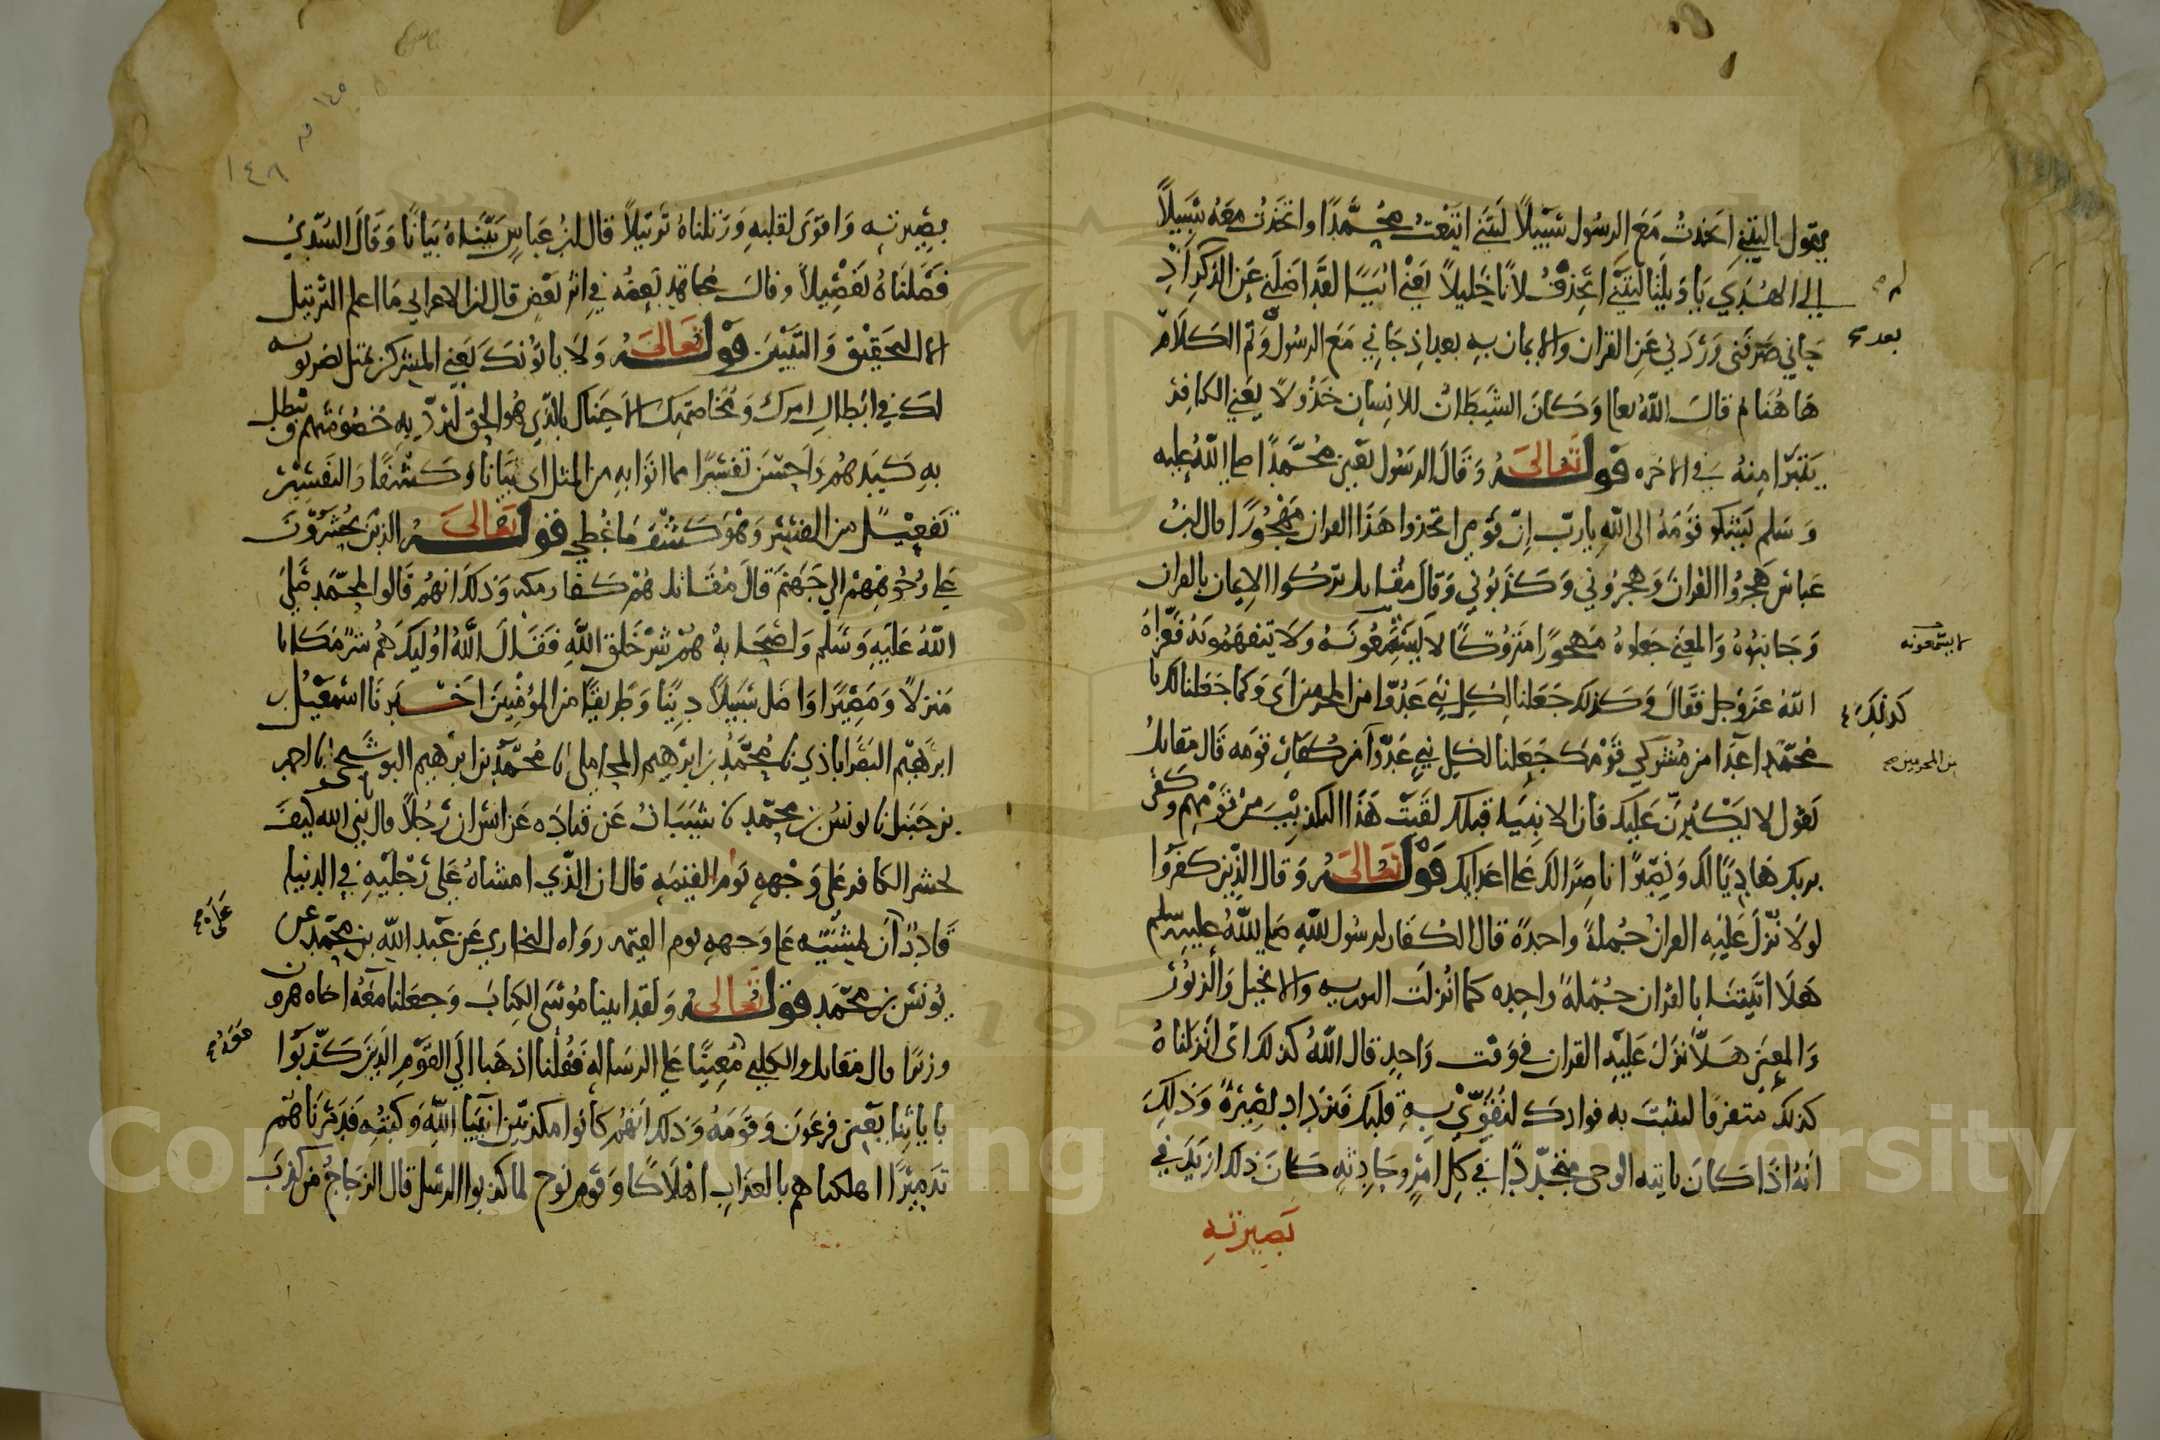 يقول يا ليتني اتخذت مع الرسول سبيلا ليتني اتبعت محمدا واتخذت معه سبيلا
الى الهدى يا ويلتا ليتني لم اتخذ فلانا خليلا يعني ابيا لقد اضلني عن الذكر اذ
جاني صرفني وردني عن القران والايمان به بعد اذ جاني مع الرسول وتم الكلام
بعد
هاهنا ثم قال الله تعالى وكان الشيطان للانسان خذولا يعني الكافر
يتبرا منه في الاخره قوله تعالى وقال الرسول يعني محمدا صلى الله عليه
وسلم يشكو قومه الى الله يا رب ان قومي اتخذوا هذا القران مهجورا قال ابن
عباس هجروا القران وهجروني وكذبوني وقال مقاتل تركوا الايمان بالقران
وجانبوه والمعنى جعلوه مهجورا متروكا لا يستمعونه ولا يتفهمونه فعزاه
لا يستمعونه
الله عز وجل فقال وكذلك جعلنا لكل نبي عدوا من المجرمين اي وكما جعلنا لك يا
كذلك
محمد اعدا من مشركي قومك جعلنا لكل نبي عدوا من كفار قومه قال مقاتل
من المجرمين
يقول لا يكبرن عليك فان الانبياء قبلك لقيت هذا التكذيب من قومهم وكفى
بربك هاديا لك ونصيرا ناصرا لك على اعدايك قوله تعالى وقال الذين كفروا
لولا نزل عليه القران جملة واحدة قال الكفار لرسول الله صلى الله عليه وسلم
هلا اتيتنا بالقران جملة واحده كما انزلت التوريه والانجيل والزبور
والمعنى هلا نزل عليه القران في وقت واحد قال الله كذلك اي انزلناه
كذلك متفرقا لنثبت به فوادك لنقوي به قلبك فتزداد بصيرة وذلك
انه اذا كان ياتيه الوحى متجددا في كل امر وحادثه كان ذلك ازيد في
بصيرته
١٤٥
١٤٨
بصيرته واقوى لقلبه ورتلناه ترتيلا قال ابن عباس بيناه بيانا وقال السدي
فصلناه تفصيلا وقال مجاهد بعضه في اثر بعض قال ابن الاعرابي ما اعلم الترتيل
الا التحقيق والتبيين قوله تعالى ولا ياتونك يعني المشركين بمثل يضربونه
لك في ابطال امرك ومخاصمتك الا جيناك بالذي هو الحق لترد به خصومتهم وتبطل
به كيدهم واحسن تفسيرا مما اتوا به من المثل اي بيانا وكشفا والتفسير
تفعيل من الفسر وهو كشف ما غطي قوله تعالى الذين يحشرون
على وجوههم الى جهنم قال مقاتل هم كفار مكه وذلك انهم قالوا لمحمد صلى
الله عليه وسلم واصحابه هم شر خلق الله فقال الله اوليك هم شر مكانا
منزلا ومصيرا واضل سبيلا دينا وطريقا من المؤمنين اخبرنا اسمعيل بن
ابرهيم النصراباذي نا محمد بن ابرهيم المحاملي انا محمد بن ابرهيم البوشنجي نا احمد
بن حنبل نا يونس بن محمد نا شيبان عن قتاده عن انس ان رجلا قال يا نبي الله كيف
يحشر الكافر على وجهه يوم القيمه قال ان الذي امشاه على رجليه في الدنيا
قادر ان يمشيه على وجهه يوم القيمه رواه البخاري عن عبد الله بن محمد عن
على
يونس بن محمد قوله تعالى ولقد اتينا موسى الكتاب وجعلنا معه اخاه هرون
معه
وزيرا قال مقاتل والكلبي معينا على الرساله فقلنا اذهبا الى القوم الذين كذبوا
باياتنا يعني فرعون وقومه وذلك انهم كانوا مكذبين انبياء الله وكتبه فدمرناهم
تدميرا اهلكناهم بالعذاب اهلاكا وقوم نوح لما كذبوا الرسل قال الزجاج من كذب
Copyright © King Saud University